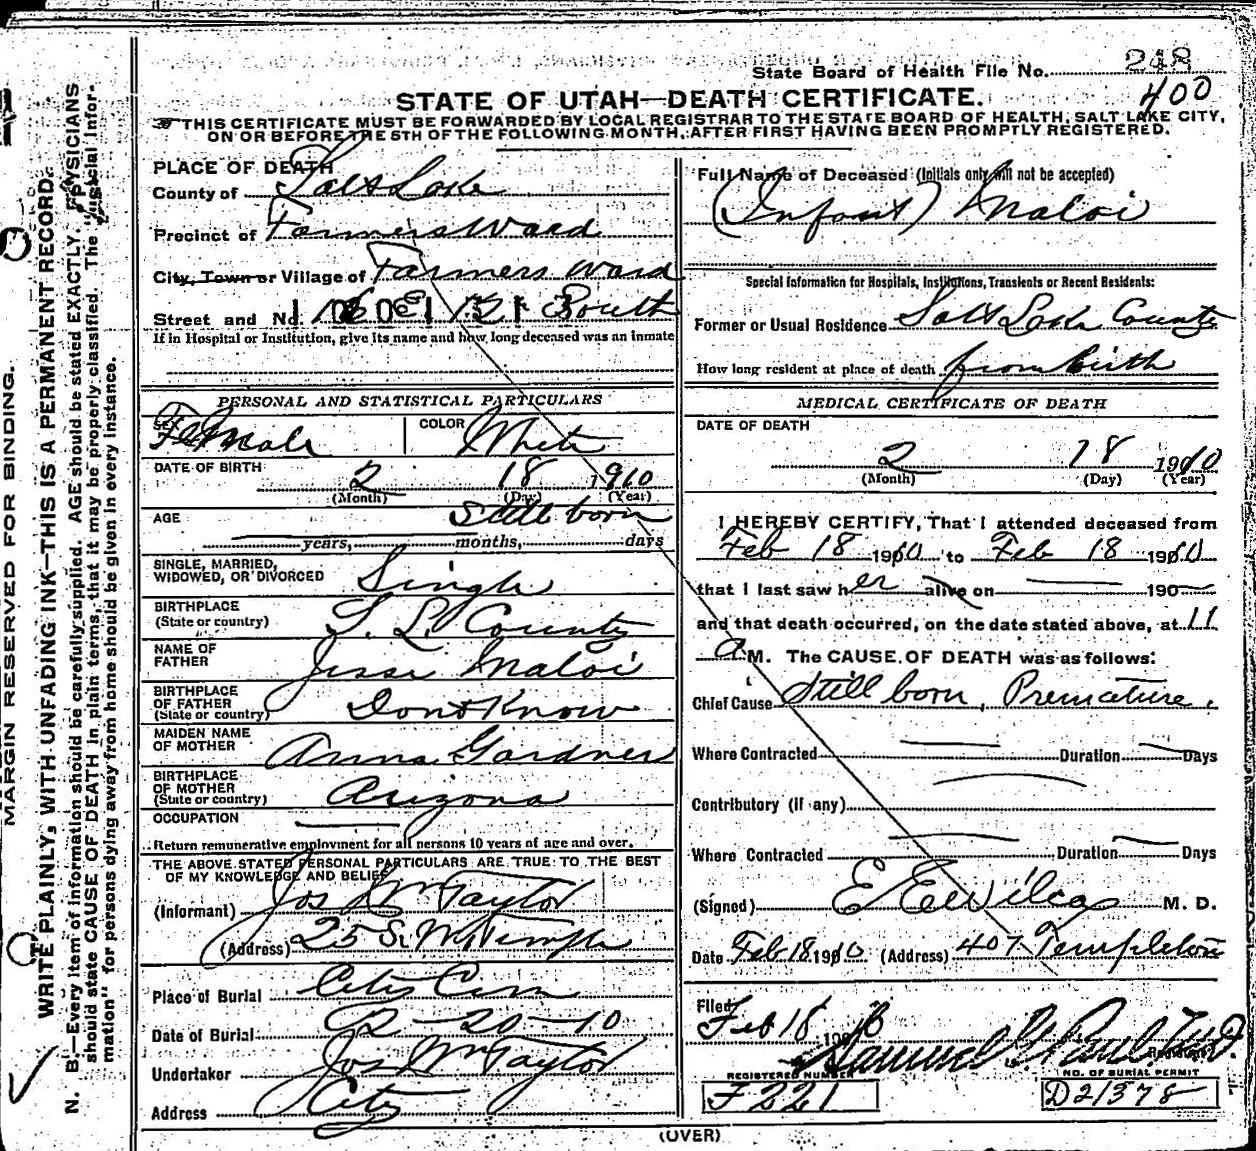 State Board of Health File No. 248
400
STATE OF UTAH—DEATH CERTIFICATE.
THIS CERTIFICATE MUST BE FORWARDED BY LOCAL REGISTRAR TO THE STATE BOARD OF HEALTH, SALT LAKE CITY,
ON OR BEFORE THE 5TH OF THE FOLLOWING MONTH, AFTER FIRST HAVING BEEN PROMPTLY REGISTERED.
MARGIN RESERVED FOR BINDING.
WRITE PLAINLY, WITH UNFADING INK—THIS IS A PERMANENT RECORD.
N. B.—Every item of information should be carefully supplied. AGE should be stated EXACTLY. PHYSICIANS
should state CAUSE OF DEATH in plain terms, that it may be properly classified. The "Special Infor-
mation" for persons dying away from home should be given in every instance.
PLACE OF DEATH
County of Salt Lake
Precinct of Farmers Ward
City, Town or Village of Farmers Ward
Street and No. South
If in Hospital or Institution, give its name and how long deceased was an inmate
PERSONAL AND STATISTICAL PARTICULARS
SEX Female
COLOR White
DATE OF BIRTH 2 18 1910
(Month) (Day) (Year)
AGE Still born
years, months, days
SINGLE, MARRIED,
WIDOWED, OR DIVORCED Single
BIRTHPLACE
(State or country) S. L. County
NAME OF
FATHER Jesse Maloi
BIRTHPLACE
OF FATHER
(State or country) Dont Know
MAIDEN NAME
OF MOTHER Anna Gardner
BIRTHPLACE
OF MOTHER
(State or country) Arizona
OCCUPATION
Return remunerative employment for all persons 10 years of age and over.
THE ABOVE STATED PERSONAL PARTICULARS ARE TRUE TO THE BEST
OF MY KNOWLEDGE AND BELIEF
(Informant) Jos Wm Taylor
(Address) 25 S. W. Temple
Place of Burial City Cem
Date of Burial 2-20-10
Undertaker Jos Wm Taylor
Address City
Full Name of Deceased (Initials only will not be accepted)
(Infant) Maloi
Special Information for Hospitals, Institutions, Transients or Recent Residents:
Former or Usual Residence Salt Lake County
How long resident at place of death from birth
MEDICAL CERTIFICATE OF DEATH
DATE OF DEATH
2 18 1910
(Month) (Day) (Year)
I HEREBY CERTIFY, That I attended deceased from
Feb 18 1910 to Feb 18 1910
that I last saw her alive on 190
and that death occurred, on the date stated above, at 11
a M. The CAUSE OF DEATH was as follows:
Chief Cause Still born, Premature.
Where Contracted Duration Days
Contributory (if any)
Where Contracted Duration Days
(Signed) E E Wilcox M. D.
Date Feb 18 1910 (Address) 407 Templeton
Filed
Feb 18
Samuel G. Paul
Registrar
REGISTERED NUMBER
F 221
NO. OF BURIAL PERMIT
D21378
(OVER)